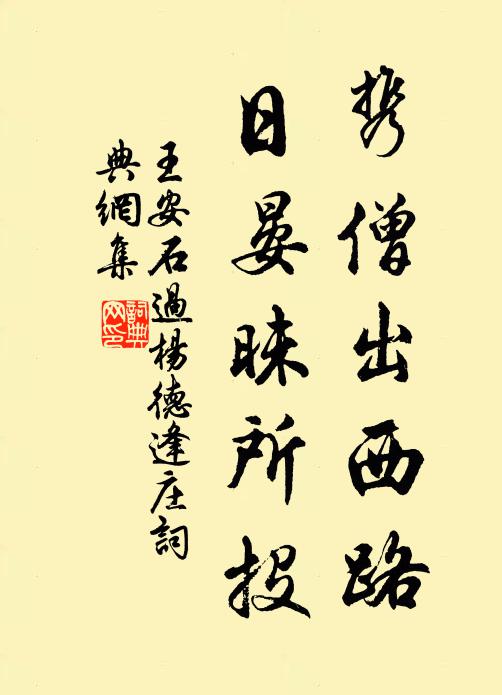 携僧出西路
日晏昧所投
王安石過楊德逢庄詞
典網集
詞典
网印